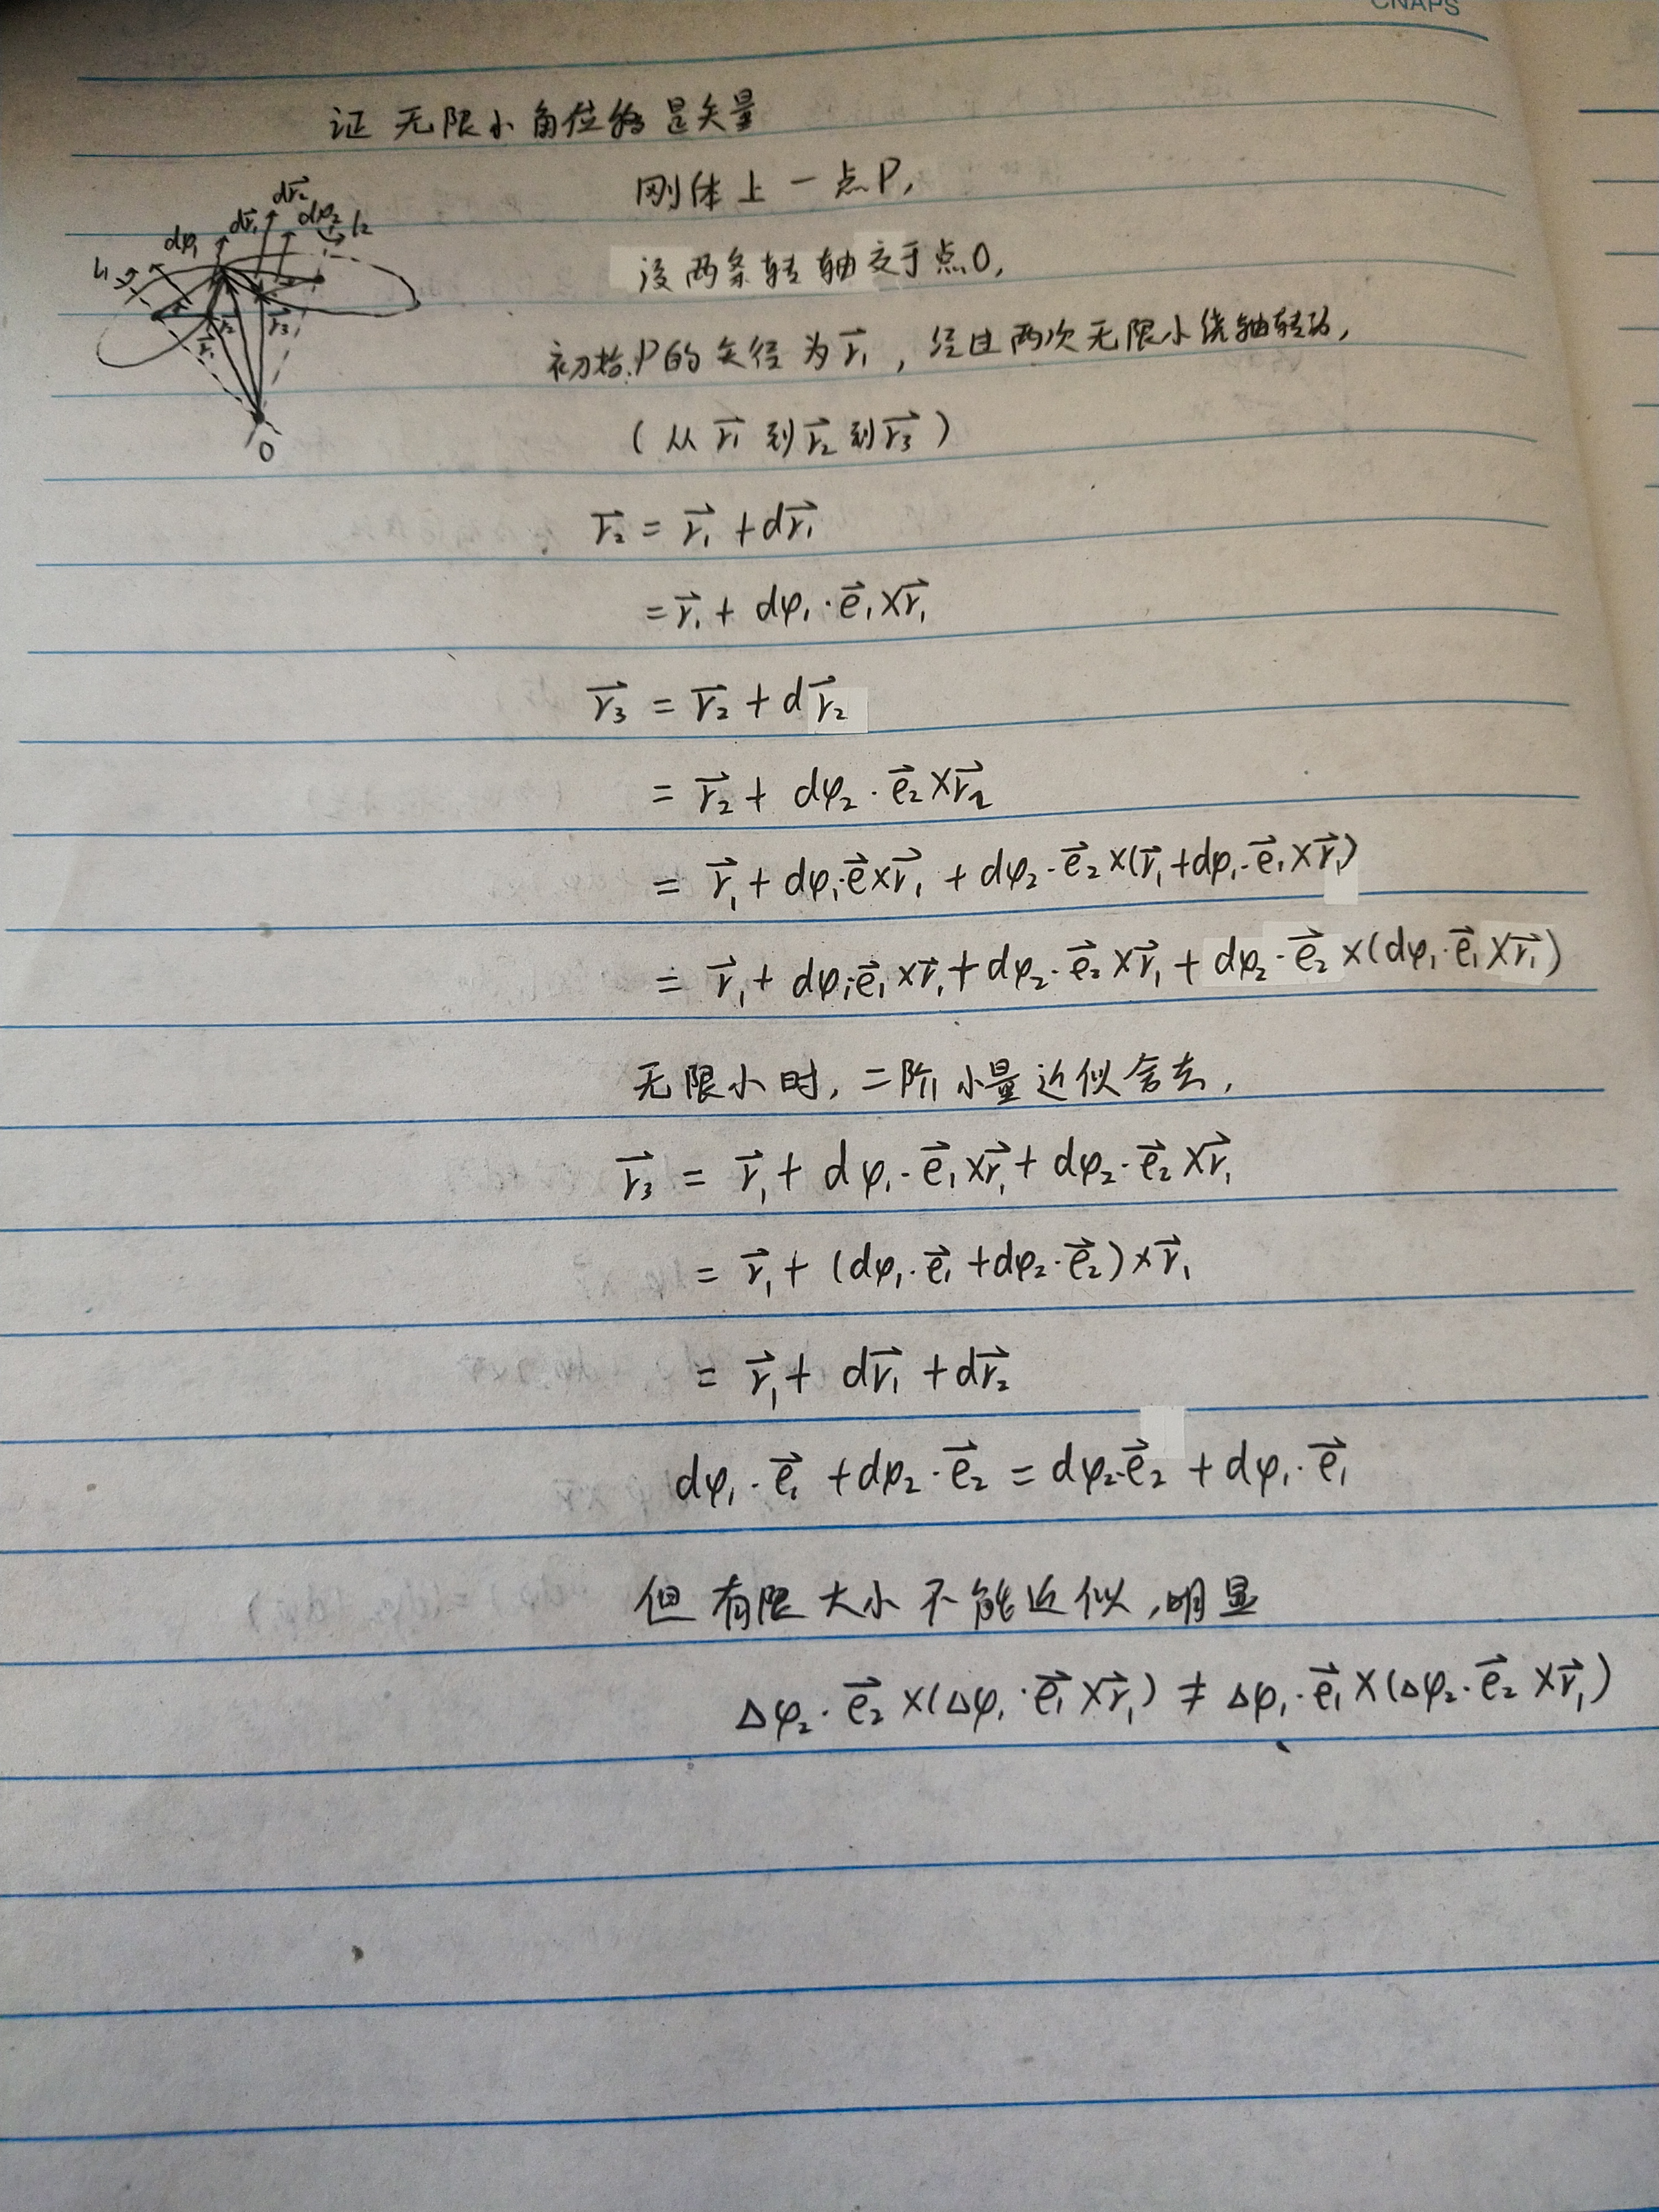 CNAPS
证 无限小角位移是矢量
刚体上一点P,
设两条转轴交于点O,
初始P的矢径为r⃗₁, 经过两次无限小绕轴转动,
(从r⃗₁到r⃗₂到r⃗₃)
dφ₁ dr⃗₁ dr⃗₂ dφ₂ l₂
l₁
r⃗₁ r⃗₂ r⃗₃
O
r⃗₂ = r⃗₁ + dr⃗₁
= r⃗₁ + dφ₁·e⃗₁×r⃗₁
r⃗₃ = r⃗₂ + dr⃗₂
= r⃗₂ + dφ₂·e⃗₂×r⃗₂
= r⃗₁ + dφ₁·e⃗×r⃗₁ + dφ₂·e⃗₂×(r⃗₁+dφ₁·e⃗₁×r⃗₁)
= r⃗₁ + dφ₁·e⃗₁×r⃗₁ + dφ₂·e⃗₂×r⃗₁ + dφ₂·e⃗₂×(dφ₁·e⃗₁×r⃗₁)
无限小时, 二阶小量近似舍去,
r⃗₃ = r⃗₁ + dφ₁·e⃗₁×r⃗₁ + dφ₂·e⃗₂×r⃗₁
= r⃗₁ + (dφ₁·e⃗₁ + dφ₂·e⃗₂)×r⃗₁
= r⃗₁ + dr⃗₁ + dr⃗₂
dφ₁·e⃗₁ + dφ₂·e⃗₂ = dφ₂·e⃗₂ + dφ₁·e⃗₁
但有限大小不能近似,明显
Δφ₂·e⃗₂×(Δφ₁·e⃗₁×r⃗₁) ≠ Δφ₁·e⃗₁×(Δφ₂·e⃗₂×r⃗₁)